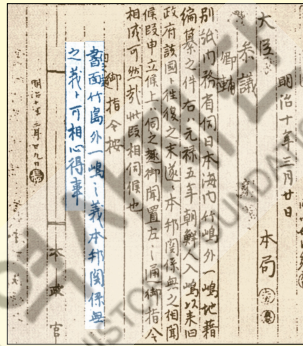 明治十年三月廿日
大臣
本局
参議
卿輔
別紙内務省伺日本海内竹嶋外一嶋地籍
編纂之件右ハ元禄五年朝鮮人入嶋以来旧
政府該国ト往復之末遂ニ本邦関係無之相聞
候段申立候上ハ伺之趣御聞置左之通御指令
相成可然哉此段相伺候也
御指令按
書面竹島外一嶋之義本邦関係無
之義ト可相心得事
明治十年三月廿九日
太政官